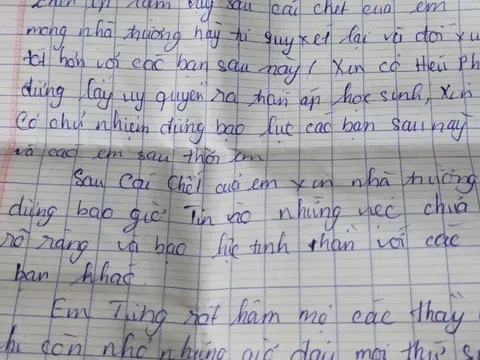 sau cái chết của em
mong nhà trường hãy tự suy xét lại và đối xử
tốt hơn với các bạn sau này, Xin cô Hiệu Ph
đừng lấy uy quyền ra trấn áp học sinh, xin
Cô chủ nhiệm đừng bạo lực các bạn sau này
và các em sau thời em
Sau Cái chết của em xin nhà trường
đừng bao giờ Tin vào những việc chưa
rõ ràng và bạo lực tinh thần với các
bạn khác
Em Từng rất hâm mộ các thầy
còn nhớ những giờ dạy môn thứ